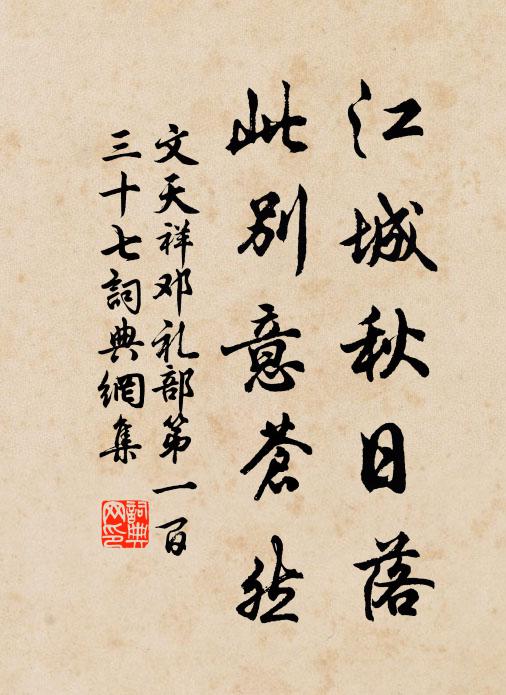 江城秋日落
此别意蒼然
文天祥邓礼部第一百
三十七詞典網集
詞典
网印